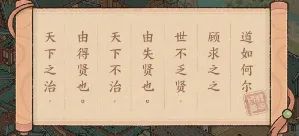 天下之治。
由得贤也。
天下不治
由失贤也。
世不乏贤
顾求之之
道如何尔